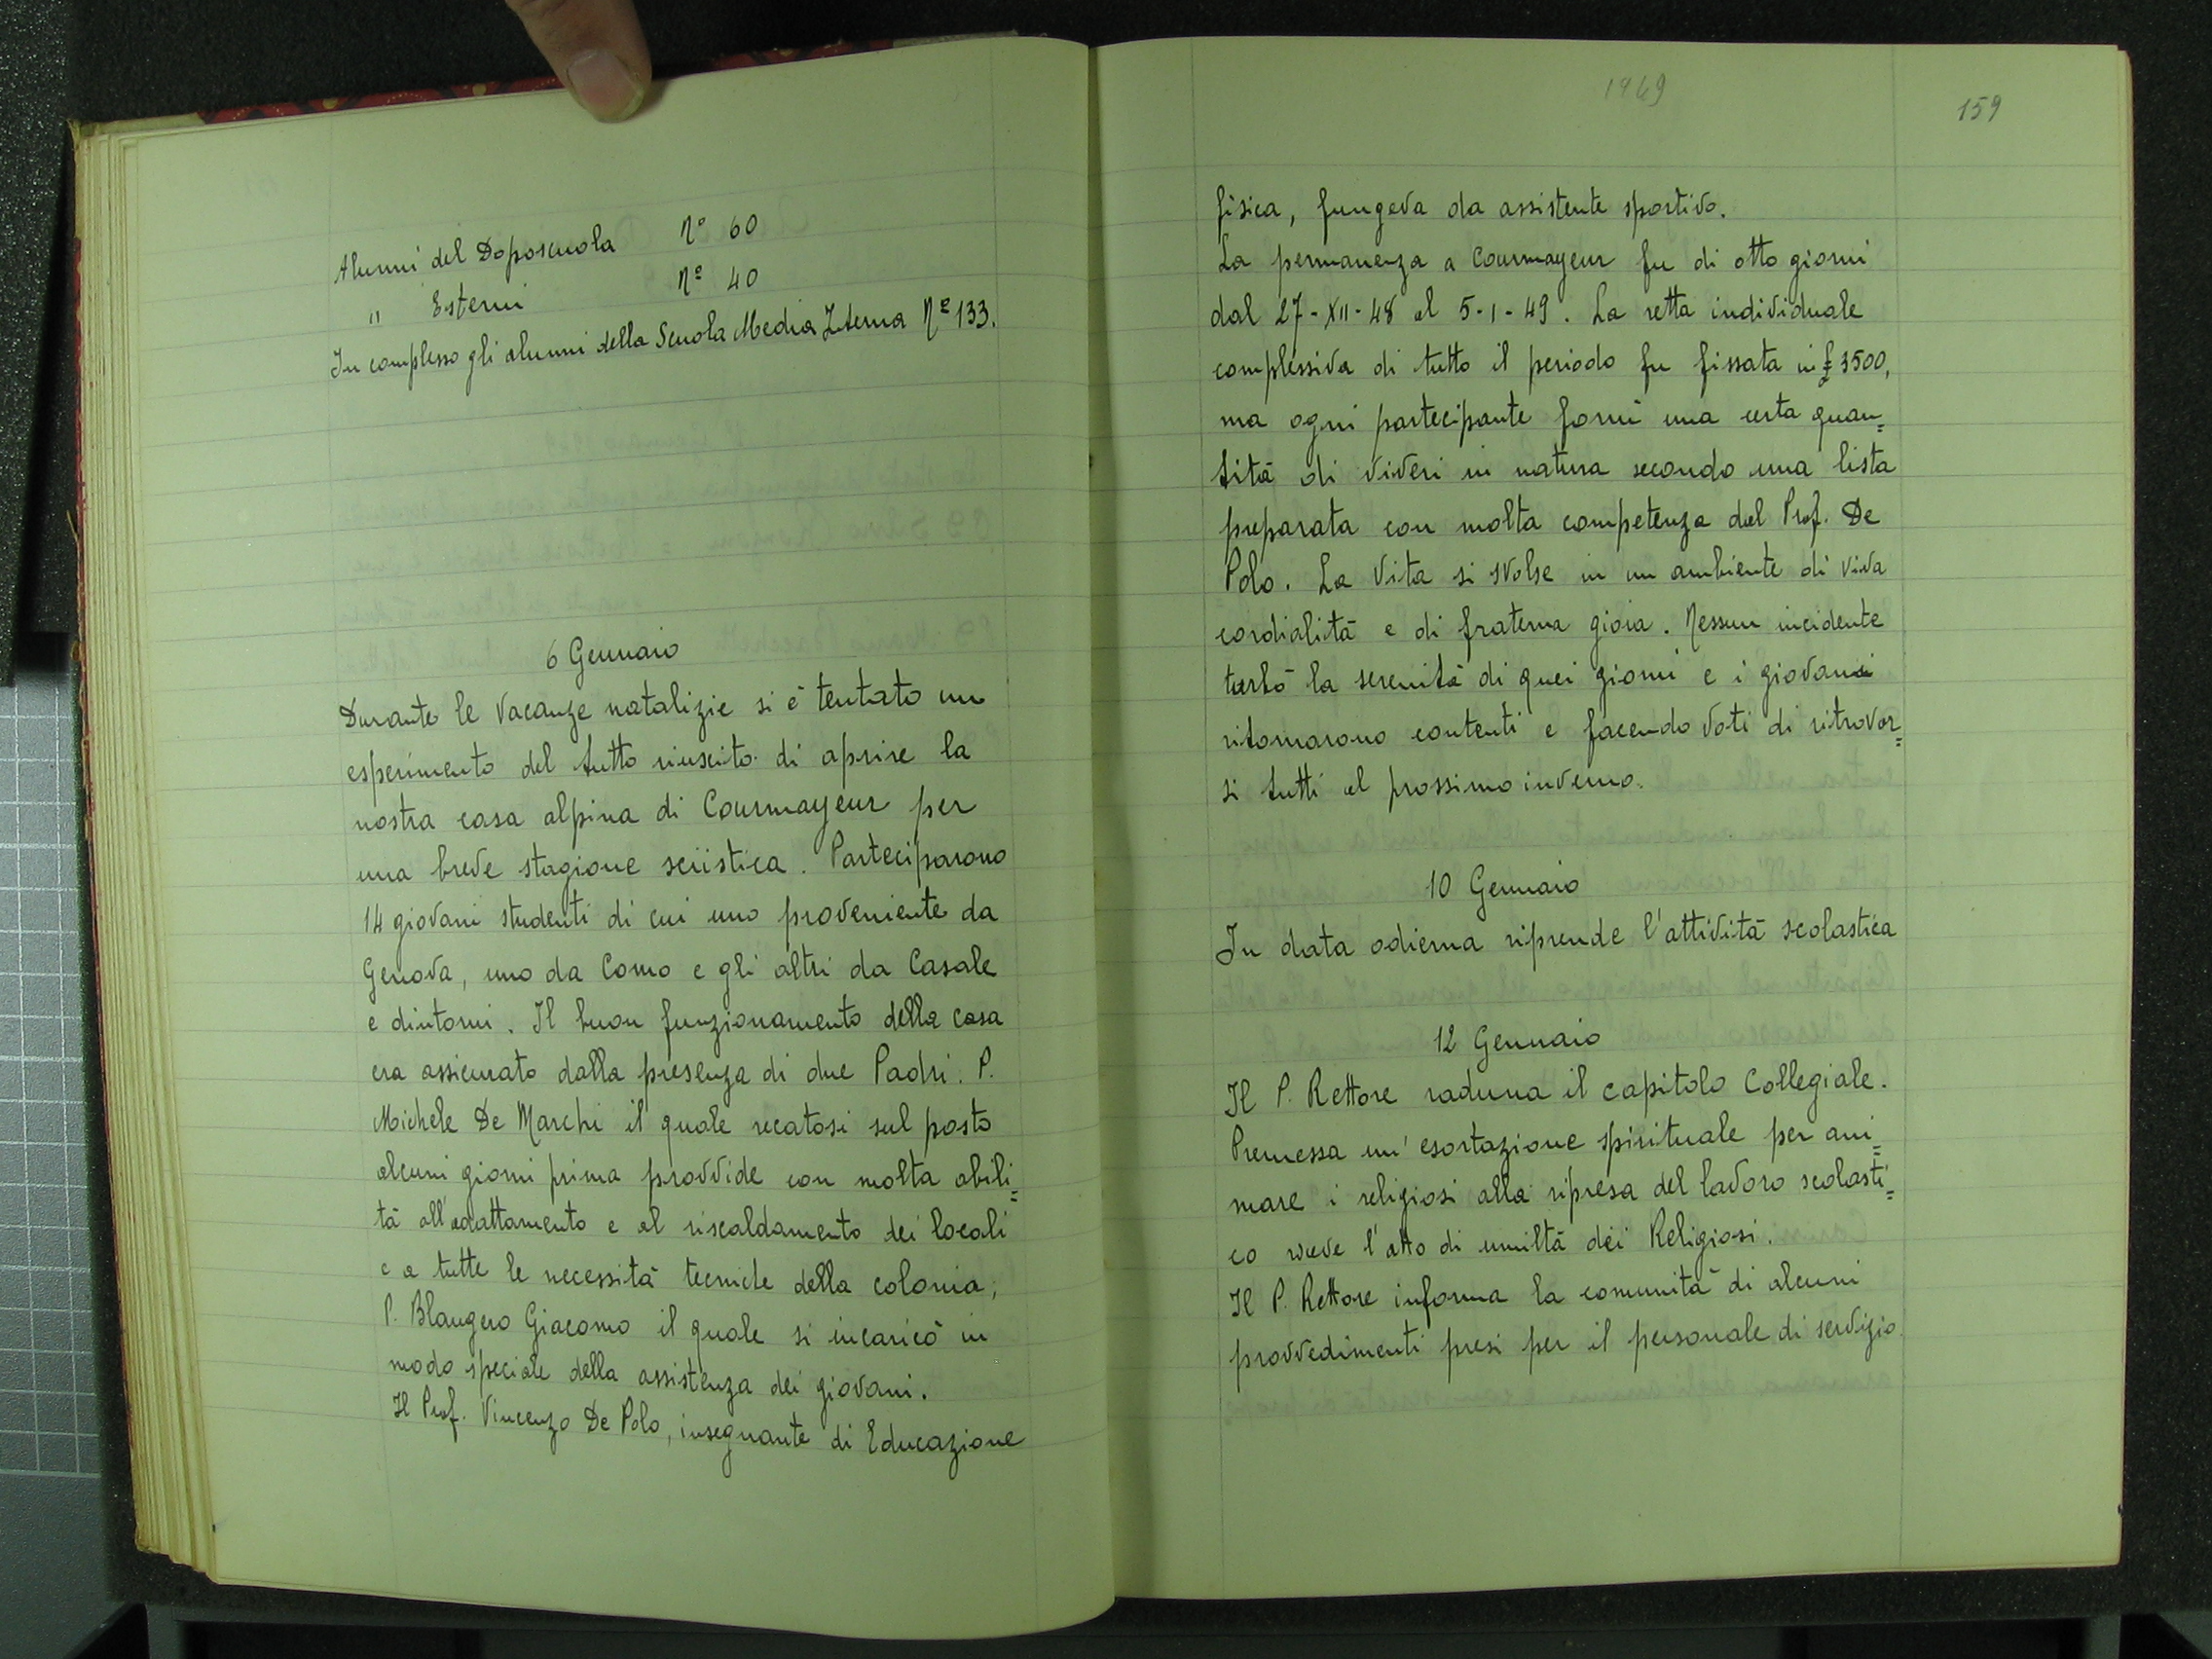 Alunni del Doposcuola Nº 60
" Esterni Nº 40
In complesso gli alunni della Scuola Media Interna Nº 133.
6 Gennaio
Durante le vacanze natalizie si è tentato un
esperimento del tutto riuscito di aprire la
nostra casa alpina di Courmayeur per
una breve stagione sciistica. Parteciparono
14 giovani studenti di cui uno proveniente da
Genova, uno da Como e gli altri da Casale
e dintorni. Il buon funzionamento della casa
era assicurato dalla presenza di due Padri. P.
Michele De Marchi il quale recatosi sul posto
alcuni giorni prima provvide con molta abili=
tà all'adattamento e al riscaldamento dei locali
e a tutte le necessità tecniche della colonia;
P. Blangero Giacomo il quale si incaricò in
modo speciale della assistenza dei giovani.
Il Prof. Vincenzo De Polo, insegnante di Educazione
1949
159
fisica, fungeva da assistente sportivo.
La permanenza a Courmayeur fu di otto giorni
dal 27-XII-48 al 5-1-49. La retta individuale
complessiva di tutto il periodo fu fissata in £ 3500,
ma ogni partecipante fornì una certa quan=
tità di viveri in natura secondo una lista
preparata con molta competenza dal Prof. De
Polo. La vita si svolse in un ambiente di viva
cordialità e di fraterna gioia. Nessun incidente
turbò la serenità di quei giorni e i giovani
ritornarono contenti e facendo voti di ritrovar=
si tutti al prossimo inverno.
10 Gennaio
In data odierna riprende l'attività scolastica
12 Gennaio
Il P. Rettore raduna il capitolo Collegiale.
Premessa un'esortazione spirituale per ani=
mare i religiosi alla ripresa del lavoro scolasti=
co riceve l'atto di umiltà dei Religiosi.
Il P. Rettore informa la comunità di alcuni
provvedimenti presi per il personale di servizio.